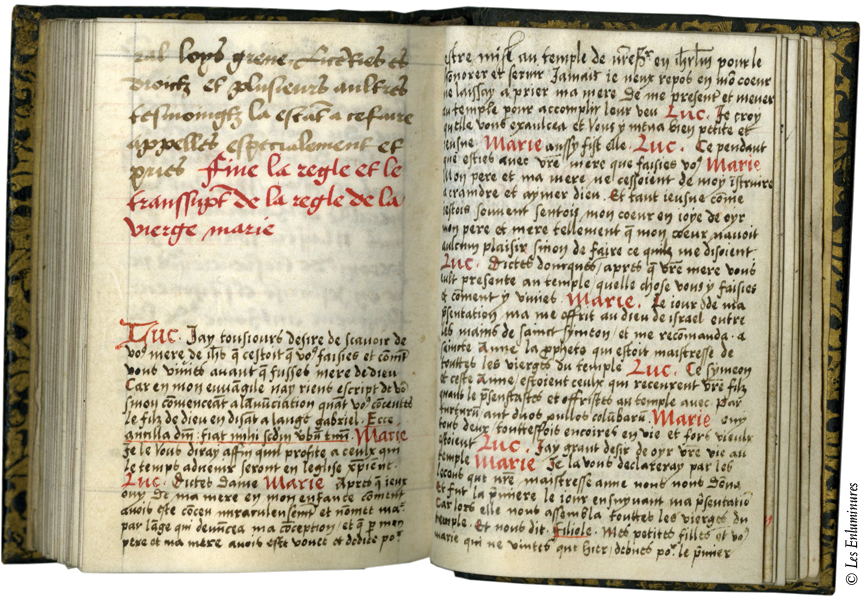 ral loys grene. Lictries et
droictz et plusieurs aultres
tesmoingz la estat a ce faire
appelles especialement et
pries Fine la regle et le
transsupt de la regle de la
vierge marie
Luc. Jay tousiours desire de scauoir de
vo9 mere de iht q cestoit q vo9 faisies et comt
vous viuies auant q fusses mere de dieu
Car en mon euuagile nay riens escript de vo9
sinou comenceat a lanuciation quat vo9 conceutes
le filz de dieu en disat a lange gabriel. Ecce
ancilla dni. fiat mihi scdm vbu tuu. Marie
Je le vous diray affin quil profite a ceulx qui
le temps aduenir seront en leglise xpiene.
Luc. Dictes dame Marie Apres q ieux
ouy de ma mere en mon enfance coment
auois este coceu miraculeusemt et nomee ma
par lage qui denuncea ma coception / et q p mon
pere et ma mere auois este vouee et dediee po
estre mise au temple de nre sr en ihrlm pour le
honorer et seruir Jamais ie neux repos en mo coeur
ne laissay a prier ma mere de me presenter et mener
au temple pour accomplir leur veu Luc. Je croy
quelle vous exaulcea et vous y mena bien petite et
ieusne. Marie aussy fist elle. Luc. Ce pendant
que esties auec vre mere que faisies vo9 Marie
Mon pere et ma mere ne cessoient de moy istruire
a craindre et aymer dieu. Et tant ieusne come
iestois souuent sentois mon coeur en ioye de oyr
mon pere et mere tellement q mon coeur nauoit
aulcun plaisir sinon de faire ce quilz me disoient
Luc. Dictes doncques / apres q vre mere vous
eult presente au temple, quelle chose vous y faisies
et coment y viuies. Marie. Le iour de ma
psentation ma me offrit au dieu de israel entre
les mains de sainct symeon / et me recomanda a
saincte Anne la pphete qui estoit maistresse de
touttes les vierges du temple Luc. Ce symeon
et ceste Anne / estoient ceulx qui receurent vre filz
quand le psentastes et offristes au temple auec. Par
turturu aut duos pullos colubaru Marie ouy
tous deux touttesfois encoires en vie et fors vieulx
estoient Luc. Jay grant desir de oyr vre vie au
temple Marie Je la vous declareray par les
lecons que nre maistresse anne nous dona
Et fut la pmiere le iour ensuyuant ma psentatio
Car lors elle nous assembla touttes les vierges du
temple. Et nous dit. Filiole. Mes petites filles et vo9
marie qui ne vintes que hier / debues po le pmier
© Les Enluminures